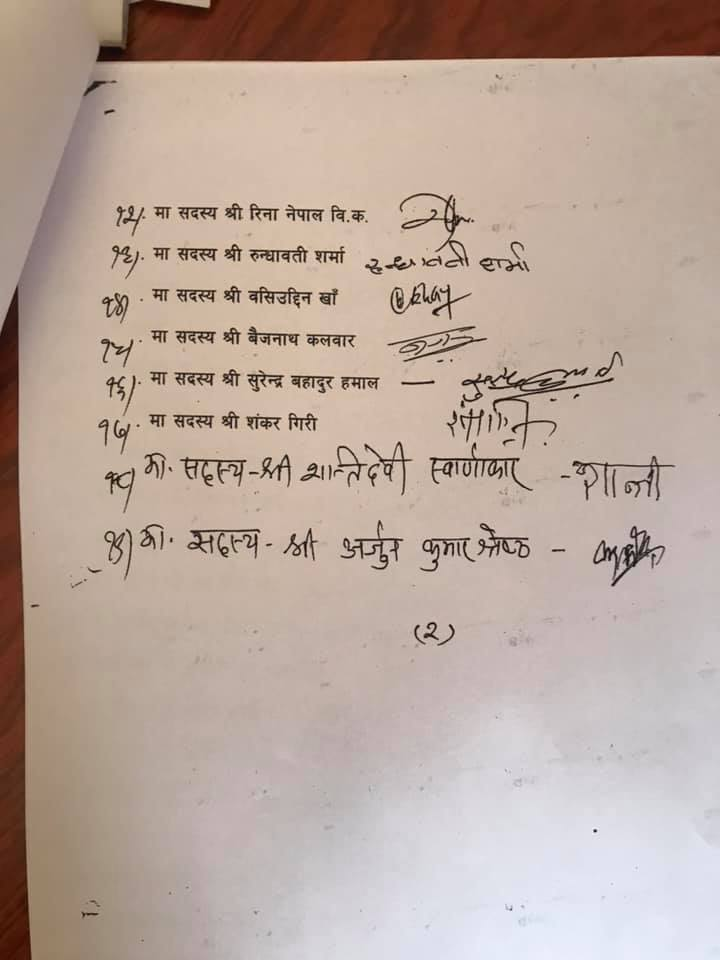 १२/. मा सदस्य श्री रिना नेपाल वि.क.
१३/. मा सदस्य श्री रुन्धावती शर्मा रुन्धावती शर्मा
१४/. मा सदस्य श्री वसिउद्दिन खाँ
१५/ मा सदस्य श्री बैजनाथ कलवार
१६/. मा सदस्य श्री सुरेन्द्र बहादुर हमाल —
१७/ मा सदस्य श्री शंकर गिरी
१८/ मा. सदस्य-श्री शान्तिदेवी स्वार्णाकार - शान्ती
१९/ मा. सदस्य - श्री अर्जुन कुमार श्रेष्ठ -
(२)